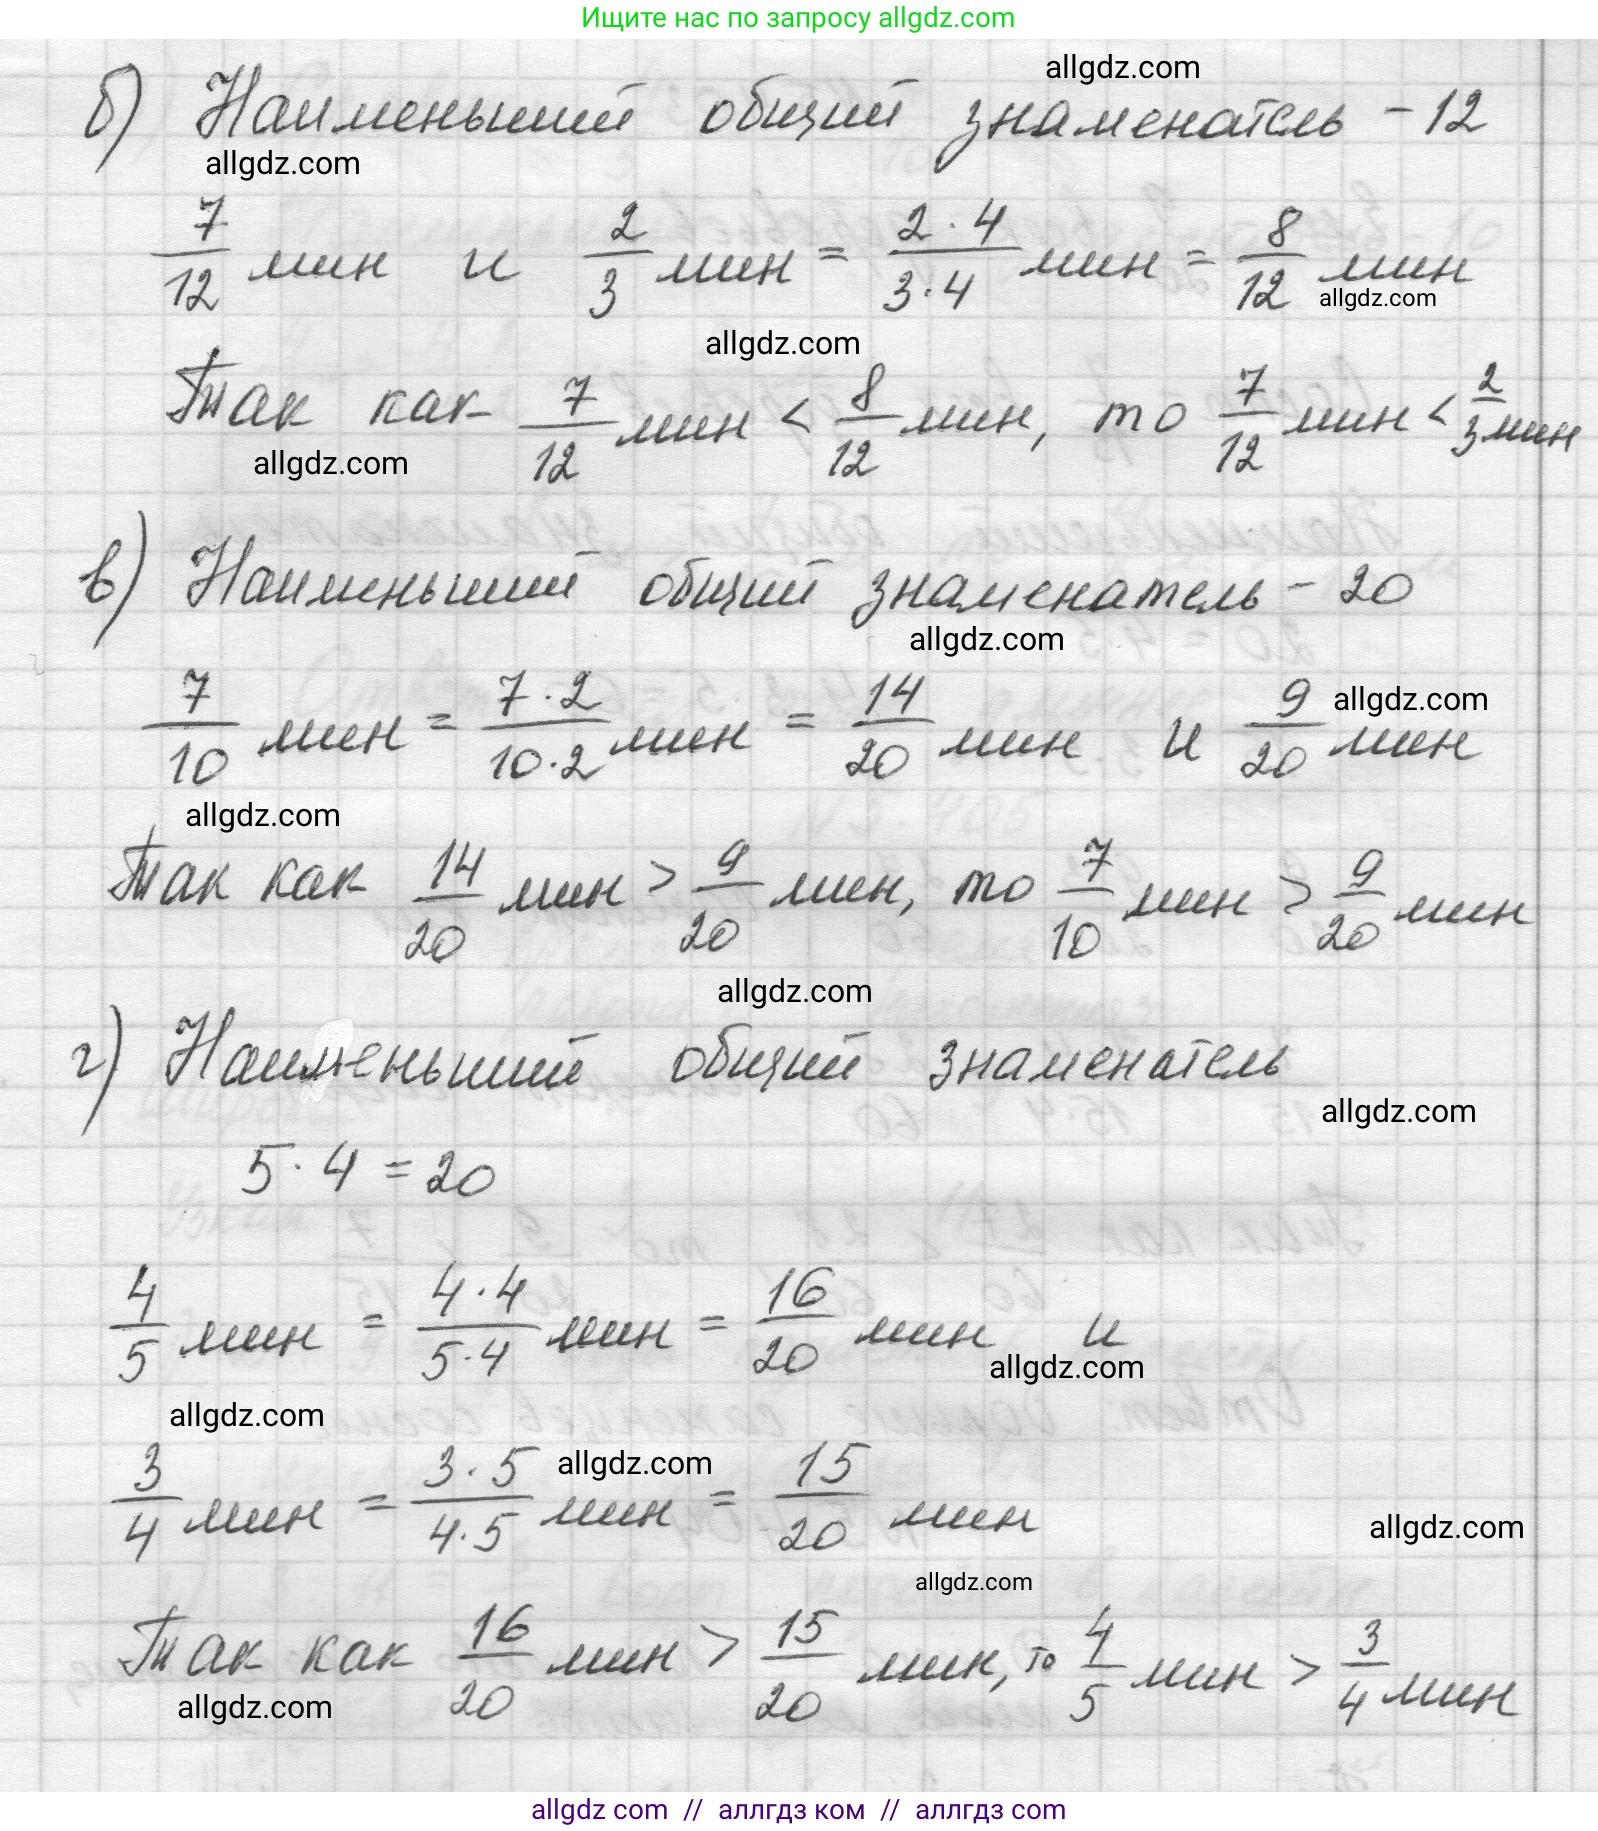 Ищите нас по запросу allgdz.com
allgdz.com
б) Наименьший общий знаменатель - 12
allgdz.com
7/12 мин и 2/3 мин = 2·4/3·4 мин = 8/12 мин
allgdz.com
allgdz.com
Так как 7/12 мин < 8/12 мин, то 7/12 мин < 2/3 мин
allgdz.com
в) Наименьший общий знаменатель - 20
allgdz.com
7/10 мин = 7·2/10·2 мин = 14/20 мин и 9/20 мин
allgdz.com
allgdz.com
Так как 14/20 мин > 9/20 мин, то 7/10 мин > 9/20 мин
allgdz.com
г) Наименьший общий знаменатель
allgdz.com
5·4 = 20
4/5 мин = 4·4/5·4 мин = 16/20 мин и
allgdz.com
allgdz.com
3/4 мин = 3·5/4·5 мин = 15/20 мин
allgdz.com
allgdz.com
allgdz.com
Так как 16/20 мин > 15/20 мин, то 4/5 мин > 3/4 мин
allgdz.com
allgdz com // аллгдз ком // аллгдз com